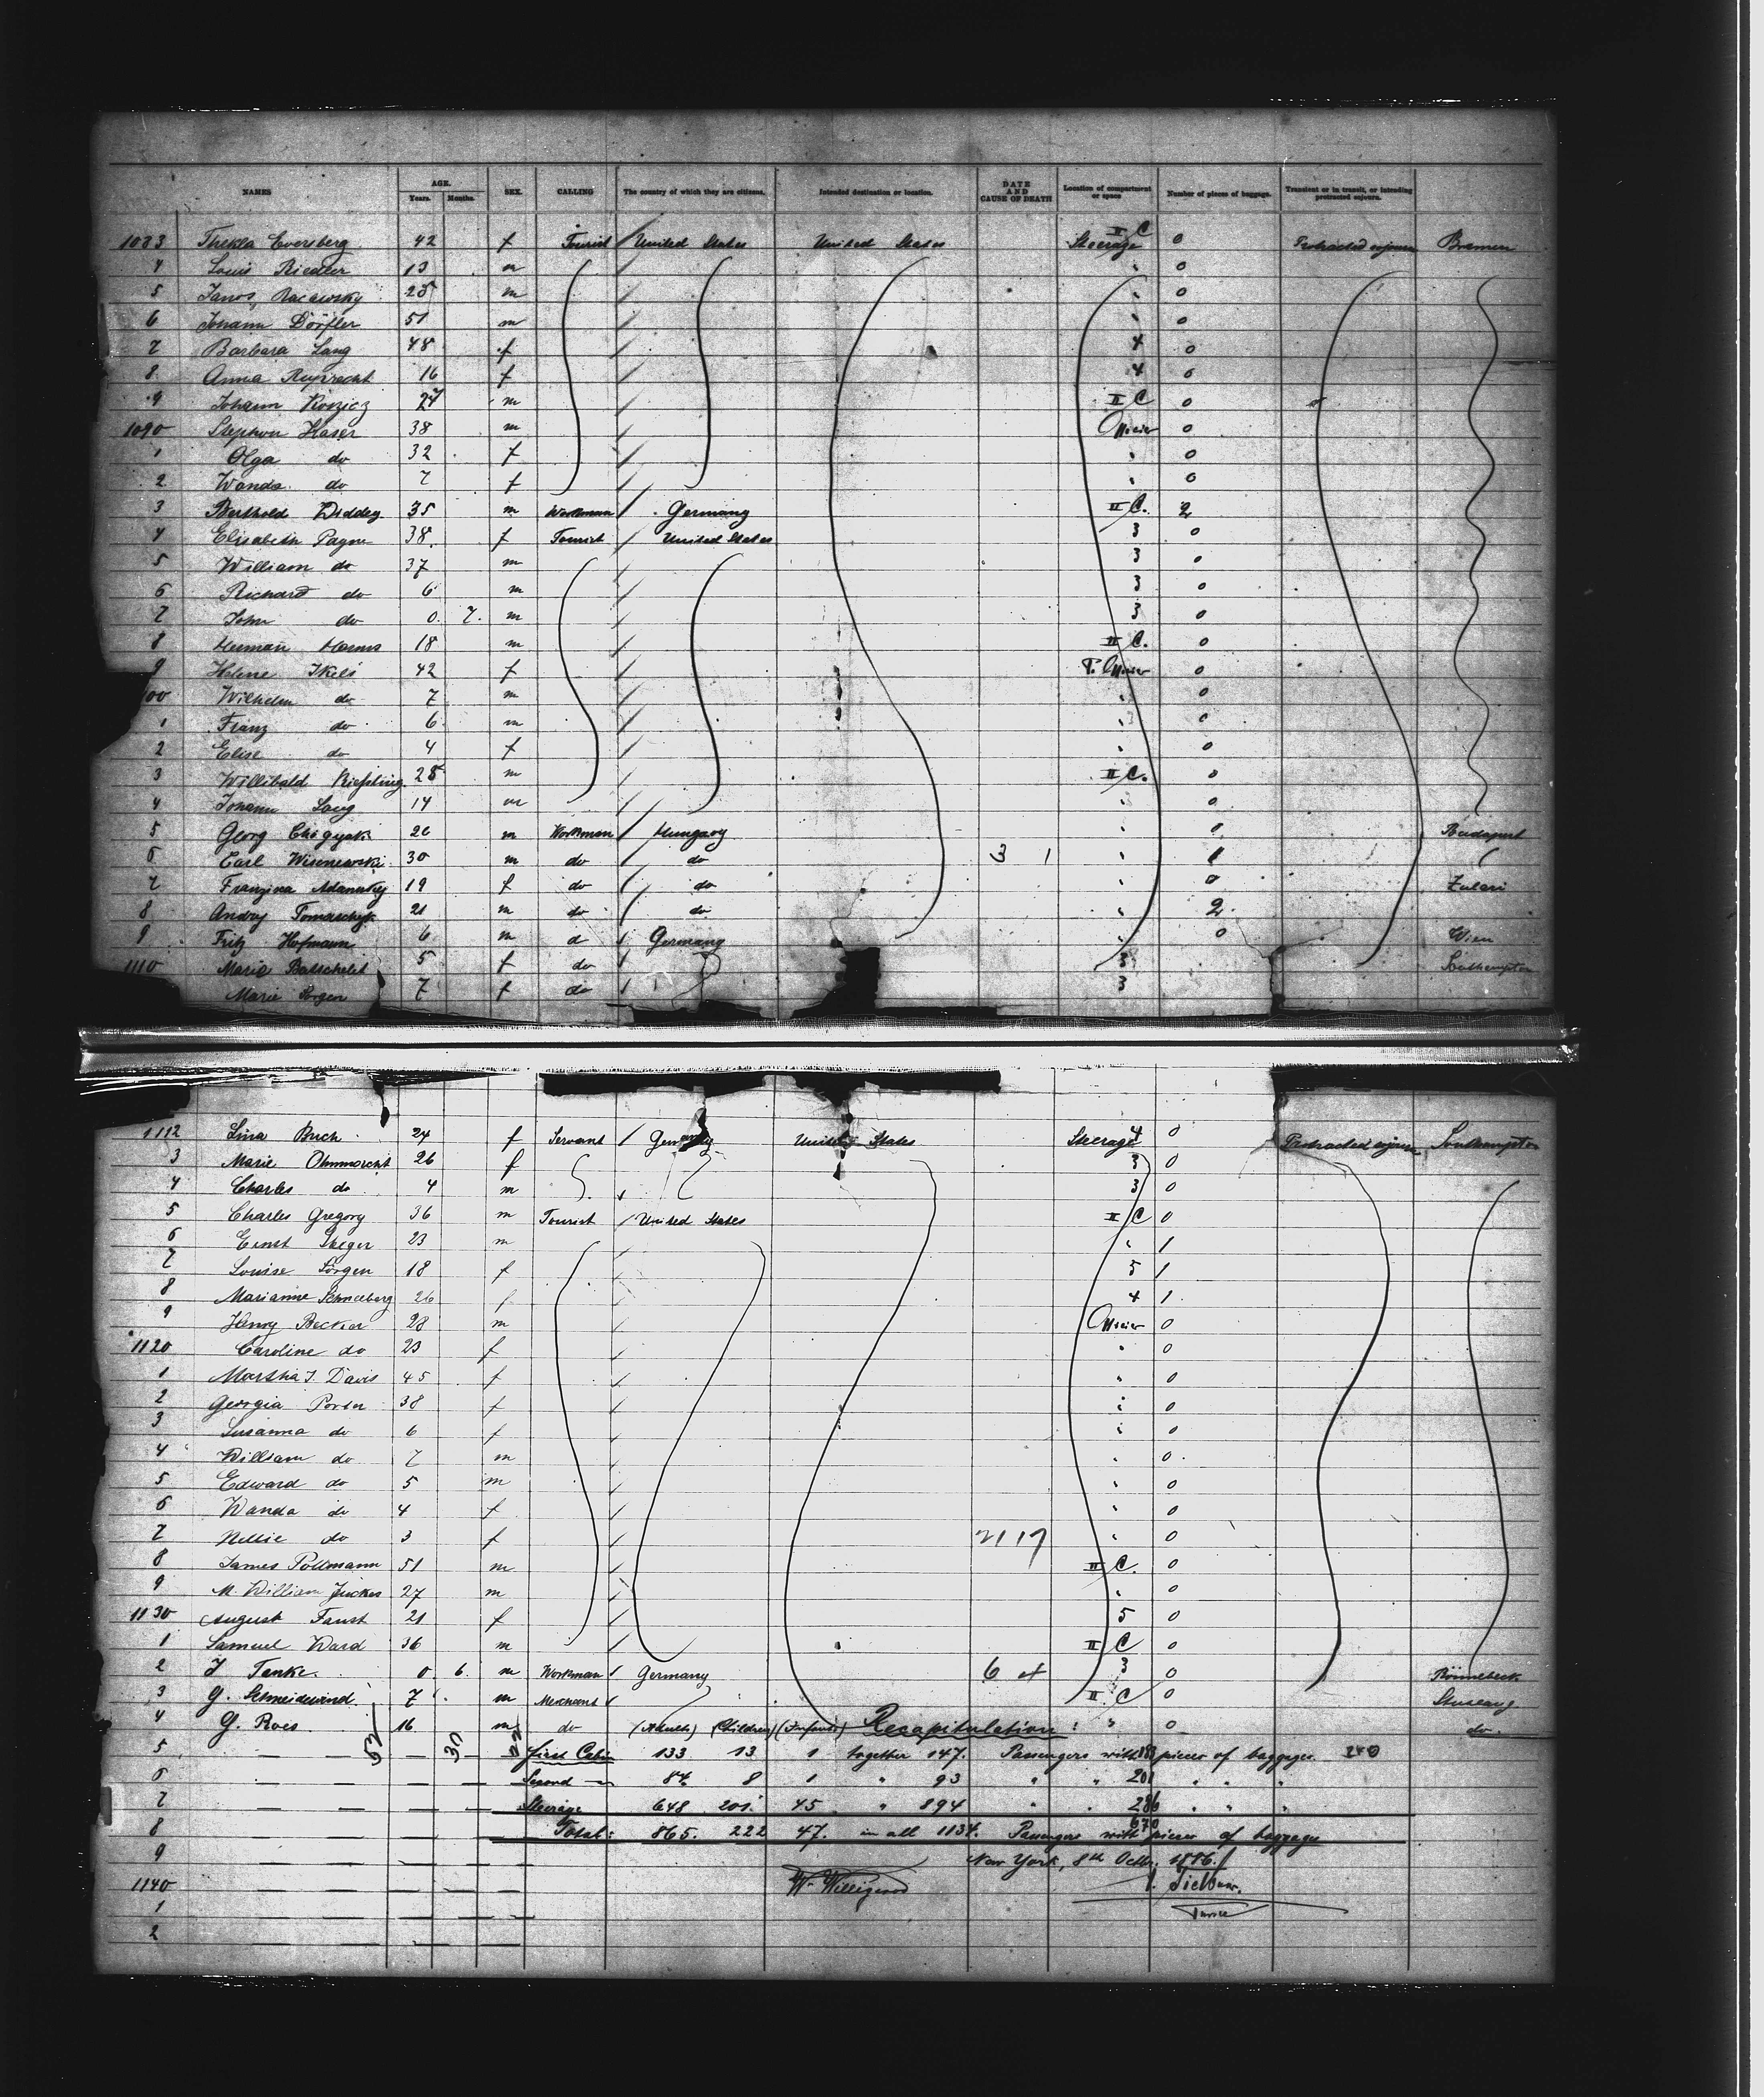 NAMES AGE. Years. Months. SEX. CALLING The country of which they are citizens. Intended destination or location. DATE AND CAUSE OF DEATH Location of compartment or space Number of pieces of baggage. Transient or in transit, or intending protracted sojourn.
1083 Thekla Eversberg 42 f Tourist / United States United States Steerage II C 0 Protracted sojourn Bremen
4 Louis Riedler 13 m 0
5 Janos 25 m 0
6 Johann Dörfler 51 m 0
7 Barbara Lang 48 f 4 0
8 Anna Ruprecht 16 f 4 0
9 Johann 27 m II C 0
1090 Stephan Haser 38 m Officier 0
1 Olga do 32 f 0
2 Wanda do 7 f 0
3 Berthold 35 m Workman / Germany II C. 2
4 Elisabeth Payne 38 f Tourist / United States 3 0
5 William do 37 m 3 0
6 Richard do 6 m 3 0
7 John do 0 7 m 3 0
8 Herman Harms 18 m II C. 0
9 Helene Ikels 42 f Officier 0
00 Wilhelm do 7 m 0
1 Franz do 6 m 0
2 Elise do 4 f 0
3 Willibald Kießling 28 m II C. 0
4 Johann Lang 14 m 0
5 Georg 26 m Workman / Hungary Budapest
6 Carl Wisniewski 30 m do / do 3 1 1
7 Franzina 19 f do / do 0
8 Andry 21 m do / do 2
9 Fritz Hofmann 6 m d / Germany 0 Wien
1110 Maria Batschelet 5 f do / 3 Southampton
Marie Sörgen 7 f do / 3
1112 Lina Buch 24 f Servant / Germany United States Steerage 4 0 Protracted sojourn Southampton
3 Marie 26 f 3 0
4 Charles do 4 m 3 0
5 Charles Gregory 36 m Tourist / United States II C 0
6 Ernst Steger 23 m 1
7 Louise Sörgen 18 f 5 1
8 Marianne Schneeberg 26 f 4 1
9 Henry Becker 28 m Officier 0
1120 Caroline do 23 f 0
1 Martha J. Davis 45 f 0
2 Georgia Porter 38 f 0
3 Susanna do 6 f 0
4 William do 7 m 0
5 Edward do 5 m 0
6 Wanda do 4 f 0
7 Nellie do 3 f 2117 0
8 James Pollmann 51 m II C. 0
9 M. William 27 m 0
1130 August Faust 21 f 5 0
1 Samuel Ward 36 m II C 0
2 J Tenke 0 6 m Workman / Germany 6 3 0 Rönnebeck
3 G. Schneidewind 7 m Merchant / II C 0
4 G. Roes 16 m do (Adults) (Children) (Infants) Recapitulation: " 0 do
5 First Cabin 133 13 1 together 147. Passengers with pieces of baggage.
6 Second 84 8 1 " 93 " " 201 " " "
7 Steerage 648 201 45 " 894 " " 286 " " "
8 Total: 865. 222 47. in all 1134. Passengers with 670 pieces of baggage
9 New York, 8th Octbr. 1886.
1140 W. Willigerod
1
2